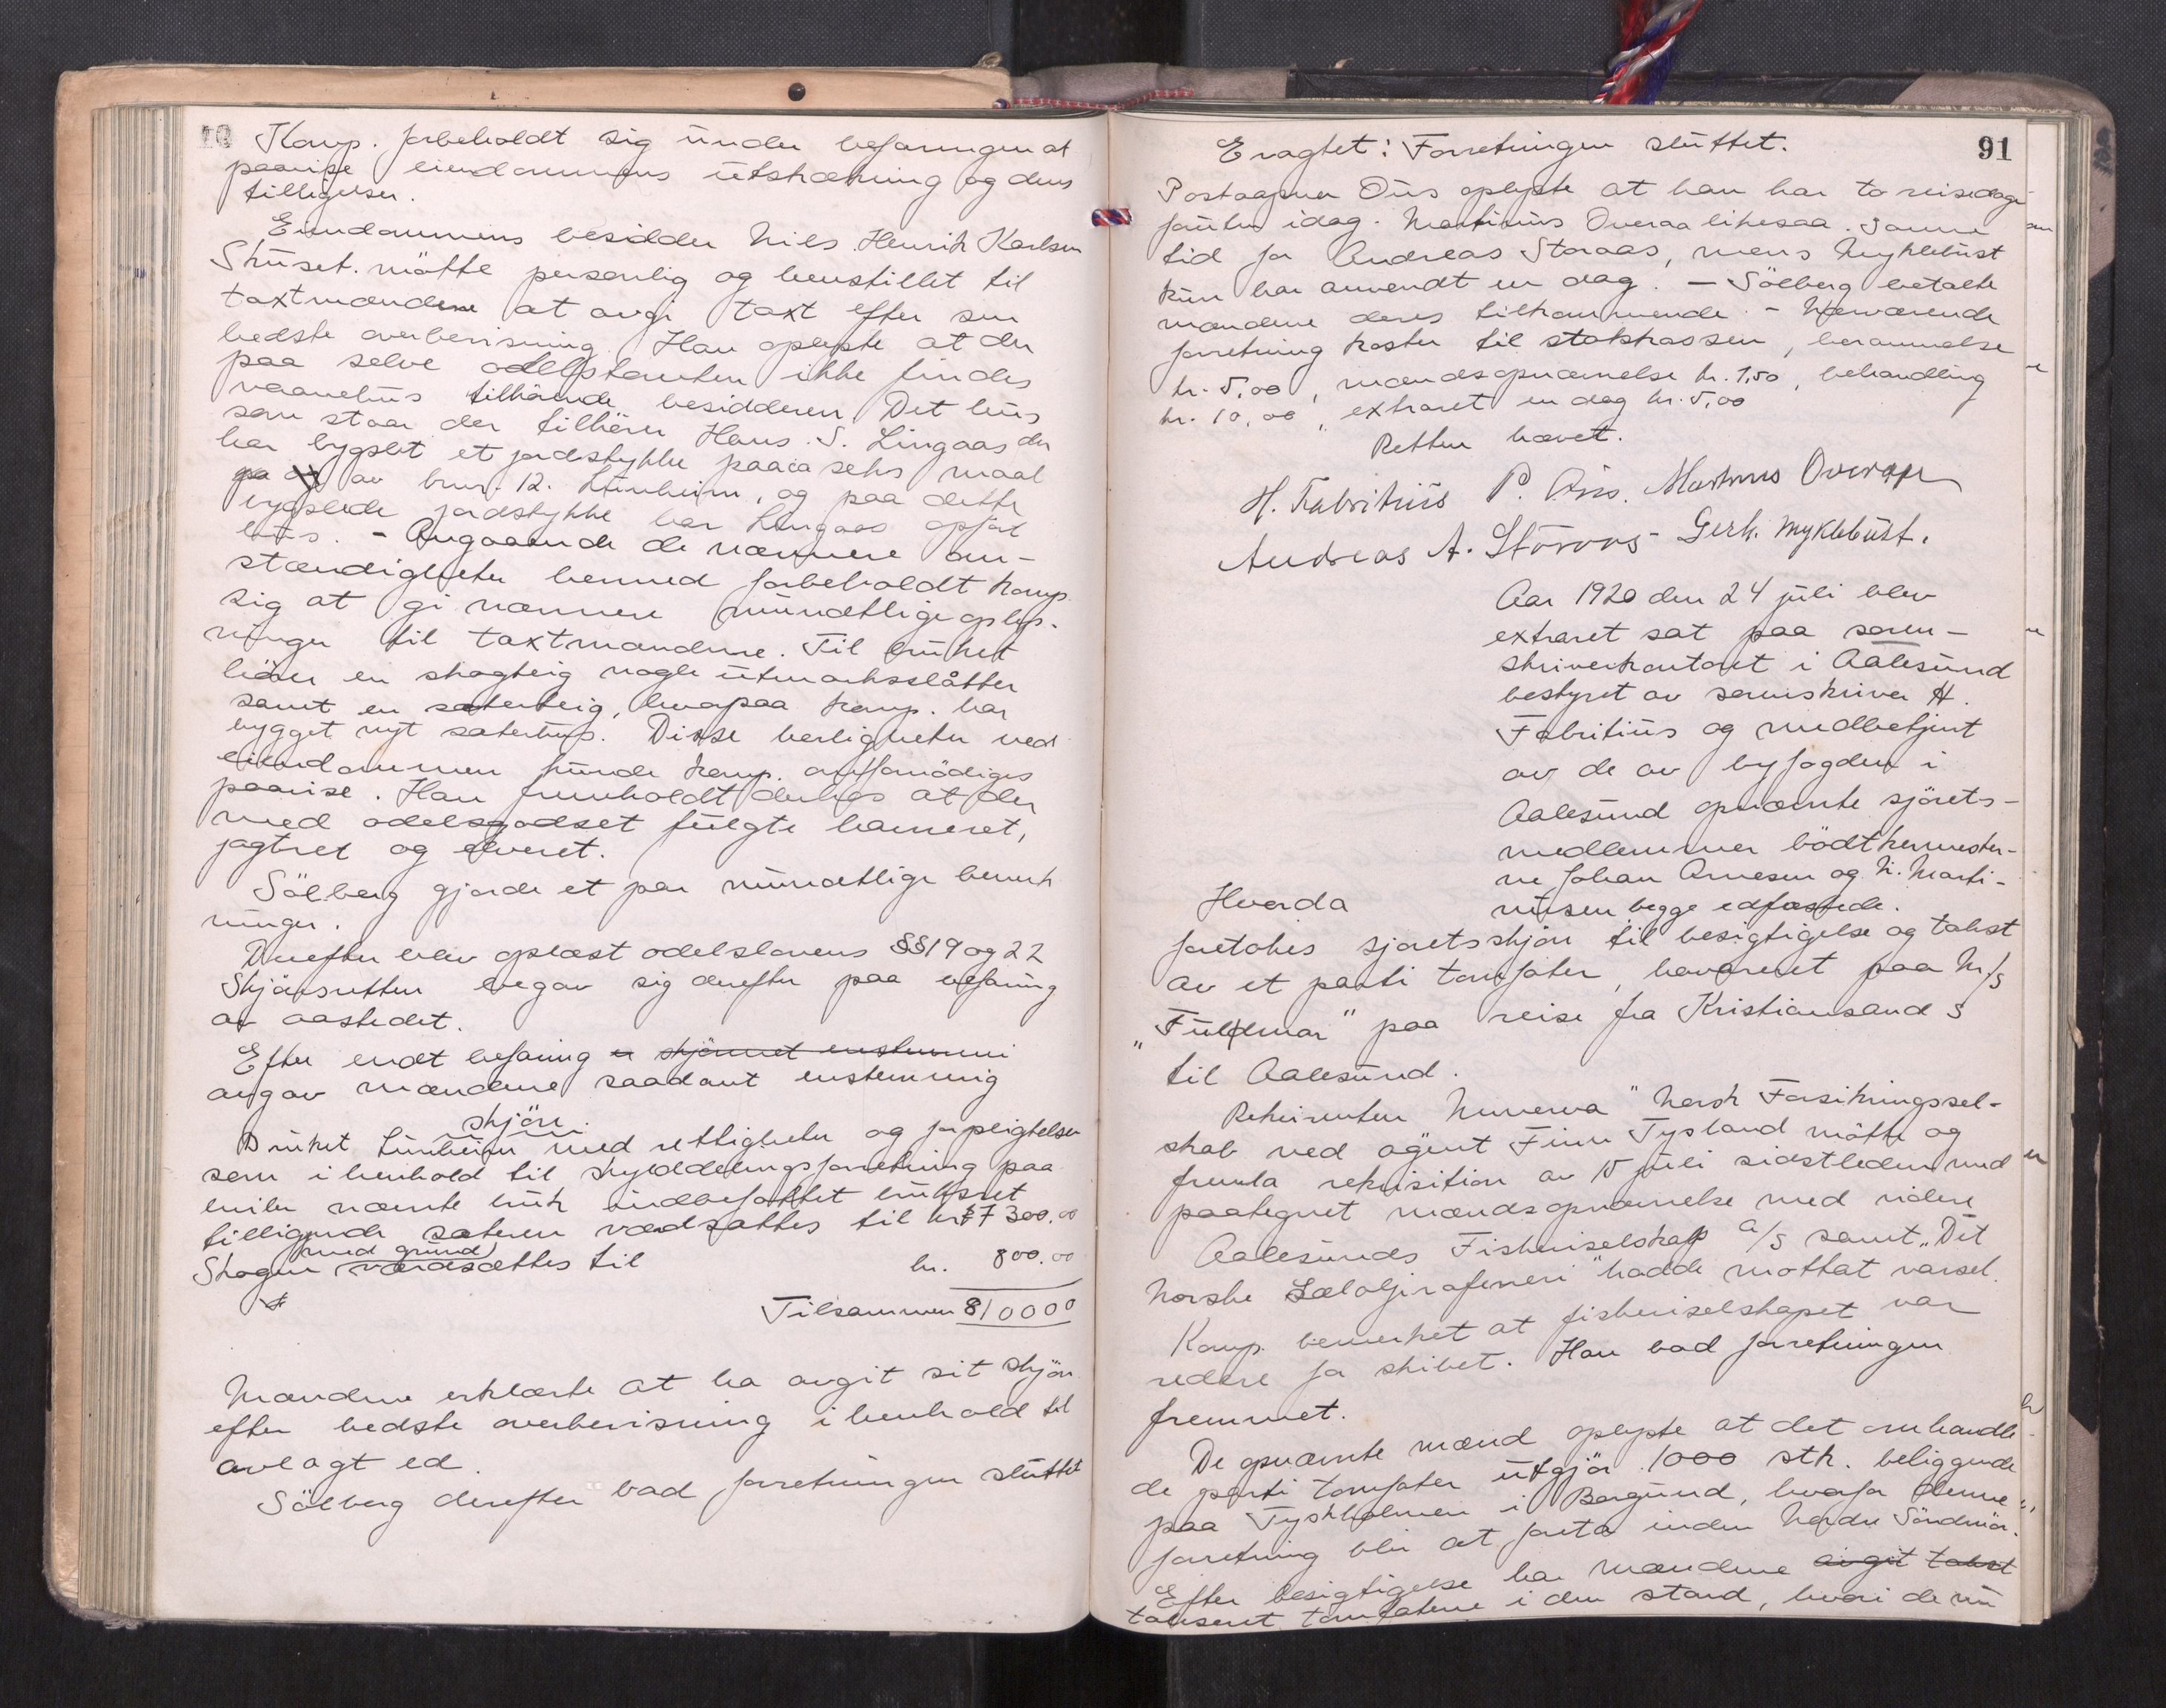 Komp. forbeholdt sig under befaringen at
paavise eiendommens utstrækning og dens
tilligelser.
Eiendommens besidder Nils Henrik Karlsen
Skuset. mötte personlig og henstillet til
taxtmændene at avgi taxt efter sin
bedste overbevisning. Han oplyste at der
paa selve odelstomten ikke findes
vaanehus tilhörende besidderen. Det hus
som staar der tilhörer Hans S. Lingaas der
har bygslet et jordstykke paa ca seks maal
av brnr. 12. Lunheim, og paa dette
bygslede jordstykke har Lingaas opfört
hus. - Angaaende de nærmere om-
stændigheter hermed forbeholdt komp.
sig at gi nærmere mundtlige oplys-
ninger til taxtmændene. Til bruket
hörer en skogteig nogle utmarksslåtter
samt en sæterteig, hvorpaa komp. har
bygget nyt sæterhus. Disse herligheter ved
eiendommen kunde komp. omfornödiges
paavise. Han fremholdt derhos at der
med odelsgodset fulgte hamneret,
jagtret og elveret.
Sölberg gjorde et par mundtlige bemerk-
ninger.
Derefter blev oplæst odelslovens §§ 19 og 22
Skjönsretten begav sig derefter paa befaring
av aastedet.
Efter endt befaring er skjönnet enstemmi
avgav mændene saadant enstemmig
skjön.
Bruket Lunheim med rettigheter og forpligtelser
som i henhold til skylddelingsforretning paa
hviler nævnte bruk indbefattet bruksret
tilligende sæteren værdsættes til kr. 7300.00
med grund
Skogen værdsættes til kr. 800.00
Tilsammen 810000
Mændene erklærte at ha avgit sit skjön
efter bedste overbevisning i henhold til
avlagt ed.
Sölberg derefter bad forretningen sluttet
91
Eragtet: Forretningen sluttet.
Postaapner Øus oplyste at han har to reisedage
foruten idag. Martinus Overaa likesaa. Samme
tid for Andreas Storaas, mens Myklebust
kun har anvendt en dag. - Sölberg betalte
mændene deres tilkommende. - Nærværende
forretning koster til statskassen, berammelse
kr. 5,00, mændsopnævnelse kr. 1,50, behandling
kr. 10,00, extraret en dag kr. 5,00
Retten hævet.
H. Fabritius P. Øus. Martinus Overaa
Andreas A. Storaas - Gerh. Myklebust.
Aar 1920 den 24 juli blev
extraret sat paa soren-
skriverkontoret i Aalesund
bestyret av sorenskriver H.
Fabritius og medbetjent
av de av byfogden i
Aalesund opnævnte sjörets-
medlemmer bödtkermester-
ne Johan Arnesen og N. Marti-
nusen begge edfæstede.
Hvorda
foretokes sjöretsskjön til besigtigelse og takst
av et parti tomfater, havareret paa M/S
"Fuldmar" paa reise fra Kristiansand S
til Aalesund.
Rekvirenten Minerva "Norsk Forsikringssel-
skab ved agent Finn Tysland mötte og
fremla rekvisition av 15 juli sidstleden med
paategnet mændsopnævnelse med videre
Aalesunds Fiskeriselskap a/s samt "Det
Norske Sæloljeraffineri" hadde mottat varsel.
Komp. bemerket at fiskeriselskapet var
redere for skibet. Han bad forretningen
fremmet.
De opnævnte mænd oplyste at det omhandle-
de parti tomfater utgjör 1000 stk. beliggende
paa Tyskholmen i Borgund, hvorfor denne
forretning blir at foreta inden Nordre Söndmör.
Efter besigtigelse har mændene avgit takst
takseret tomfatene i den stand, hvori de nu